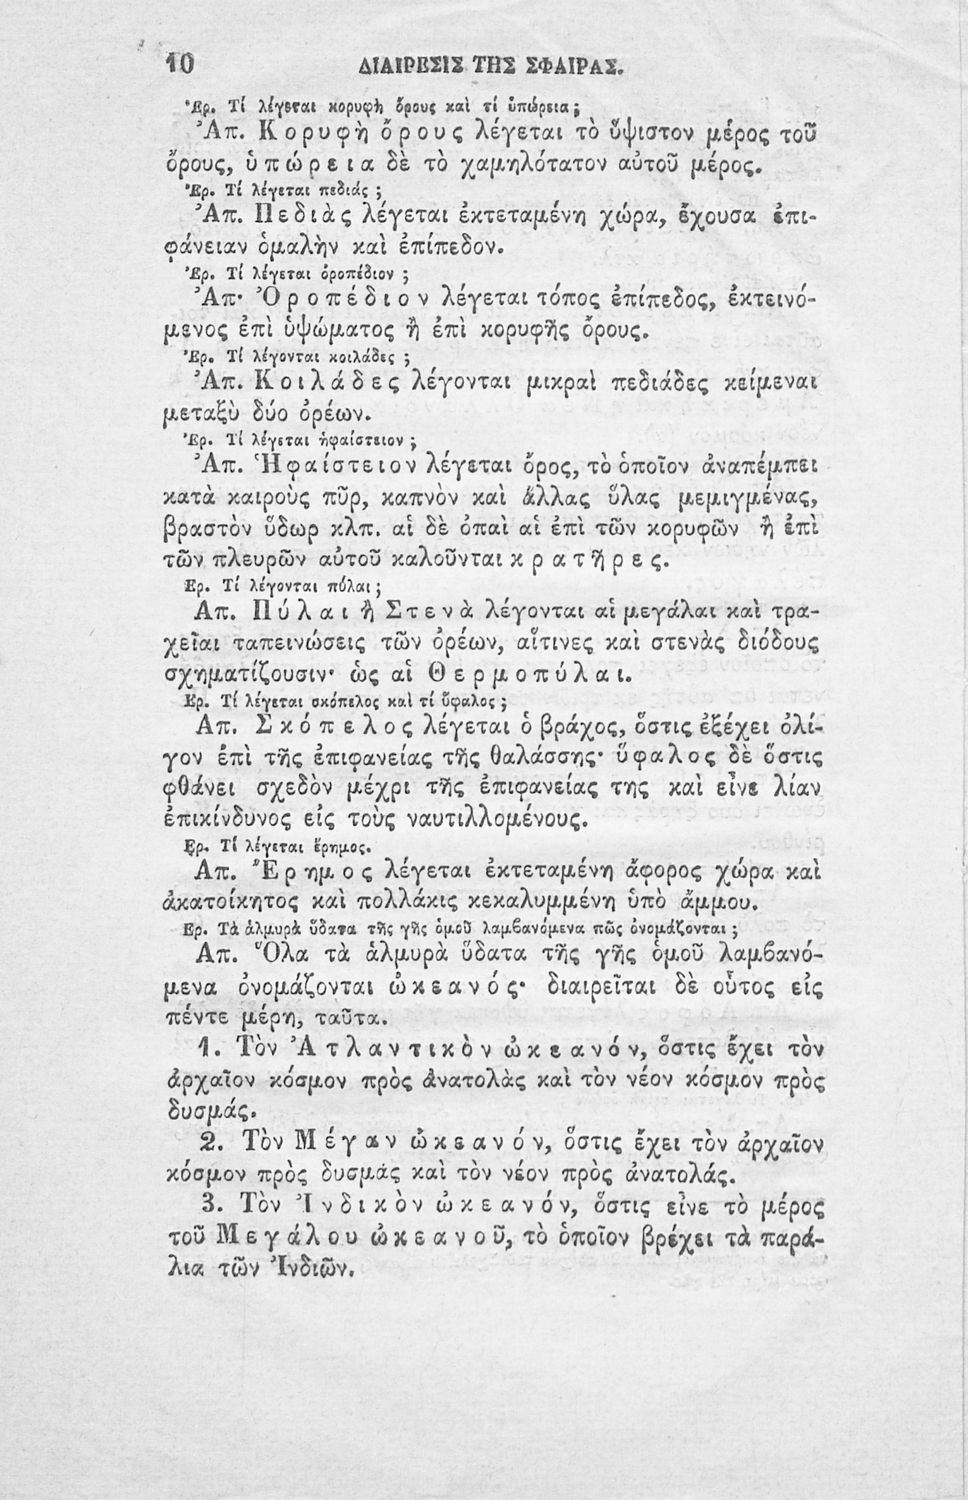 10 ΔΙΑΙΡΕΣΙΣ ΤΗΣ ΣΦΑΙΡΑΣ.
Ἐρ. Τί λέγεται κορυφὴ ὄρους καὶ τί ὑπώρεια;
Ἀπ. Κορυφὴ ὄρους λέγεται τὸ ὕψιστον μέρος τοῦ
ὄρους, ὑπώρεια δὲ τὸ χαμηλότατον αὐτοῦ μέρος.
Ἐρ. Τί λέγεται πεδιάς;
Ἀπ. Πεδιὰς λέγεται ἐκτεταμένη χώρα, ἔχουσα ἐπι-
φάνειαν ὁμαλὴν καὶ ἐπίπεδον.
Ἐρ. Τί λέγεται ὀροπέδιον;
Ἀπ· Ὀροπέδιον λέγεται τόπος ἐπίπεδος, ἐκτεινό-
μενος ἐπὶ ὑψώματος ἢ ἐπὶ κορυφῆς ὄρους.
Ἐρ. Τί λέγονται κοιλάδες;
Ἀπ. Κοιλάδες λέγονται μικραὶ πεδιάδες κείμεναι
μεταξὺ δύο ὀρέων.
Ἐρ. Τί λέγεται ἡφαίστειον;
Ἀπ. Ἡφαίστειον λέγεται ὄρος, τὸ ὁποῖον ἀναπέμπει
κατὰ καιροὺς πῦρ, καπνὸν καὶ ἄλλας ὕλας μεμιγμένας,
βραστὸν ὕδωρ κλπ. αἱ δὲ ὀπαὶ αἱ ἐπὶ τῶν κορυφῶν ἢ ἐπὶ
τῶν πλευρῶν αὐτοῦ καλοῦνται κρατῆρες.
Ερ. Τί λέγονται πύλαι;
Απ. Πύλαι ἢ Στενὰ λέγονται αἱ μεγάλαι καὶ τρα-
χεῖαι ταπεινώσεις τῶν ὀρέων, αἵτινες καὶ στενὰς διόδους
σχηματίζουσιν· ὡς αἱ Θερμοπύλαι.
Ερ. Τί λέγεται σκόπελος καὶ τί ὕφαλος;
Απ. Σκόπελος λέγεται ὁ βράχος, ὅστις ἐξέχει ὀλί-
γον ἐπὶ τῆς ἐπιφανείας τῆς θαλάσσης· ὕφαλος δὲ ὅστις
φθάνει σχεδὸν μέχρι τῆς ἐπιφανείας της καὶ εἶνε λίαν
ἐπικίνδυνος εἰς τοὺς ναυτιλλομένους.
Ερ. Τί λέγεται ἔρημος.
Απ. Ἔρημος λέγεται ἐκτεταμένη ἄφορος χώρα καὶ
ἀκατοίκητος καὶ πολλάκις κεκαλυμμένη ὑπὸ ἄμμου.
Ερ. Τὰ ἁλμυρὰ ὕδατα τῆς γῆς ὁμοῦ λαμβανόμενα πῶς ὀνομάζονται;
Απ. Ὅλα τὰ ἁλμυρὰ ὕδατα τῆς γῆς ὁμοῦ λαμβανό-
μενα ὀνομάζονται ὠκεανός· διαιρεῖται δὲ οὗτος εἰς
πέντε μέρη, ταῦτα.
1. Τὸν Ἀτλαντικὸν ὠκεανόν, ὅστις ἔχει τὸν
ἀρχαῖον κόσμον πρὸς ἀνατολὰς καὶ τὸν νέον κόσμον πρὸς
δυσμάς.
2. Τὸν Μέγαν ὠκεανόν, ὅστις ἔχει τὸν ἀρχαῖον
κόσμον πρὸς δυσμὰς καὶ τὸν νέον πρὸς ἀνατολάς.
3. Τὸν Ἰνδικὸν ὠκεανόν, ὅστις εἶνε τὸ μέρος
τοῦ Μεγάλου ὠκεανοῦ, τὸ ὁποῖον βρέχει τὰ παρά-
λια τῶν Ἰνδιῶν.